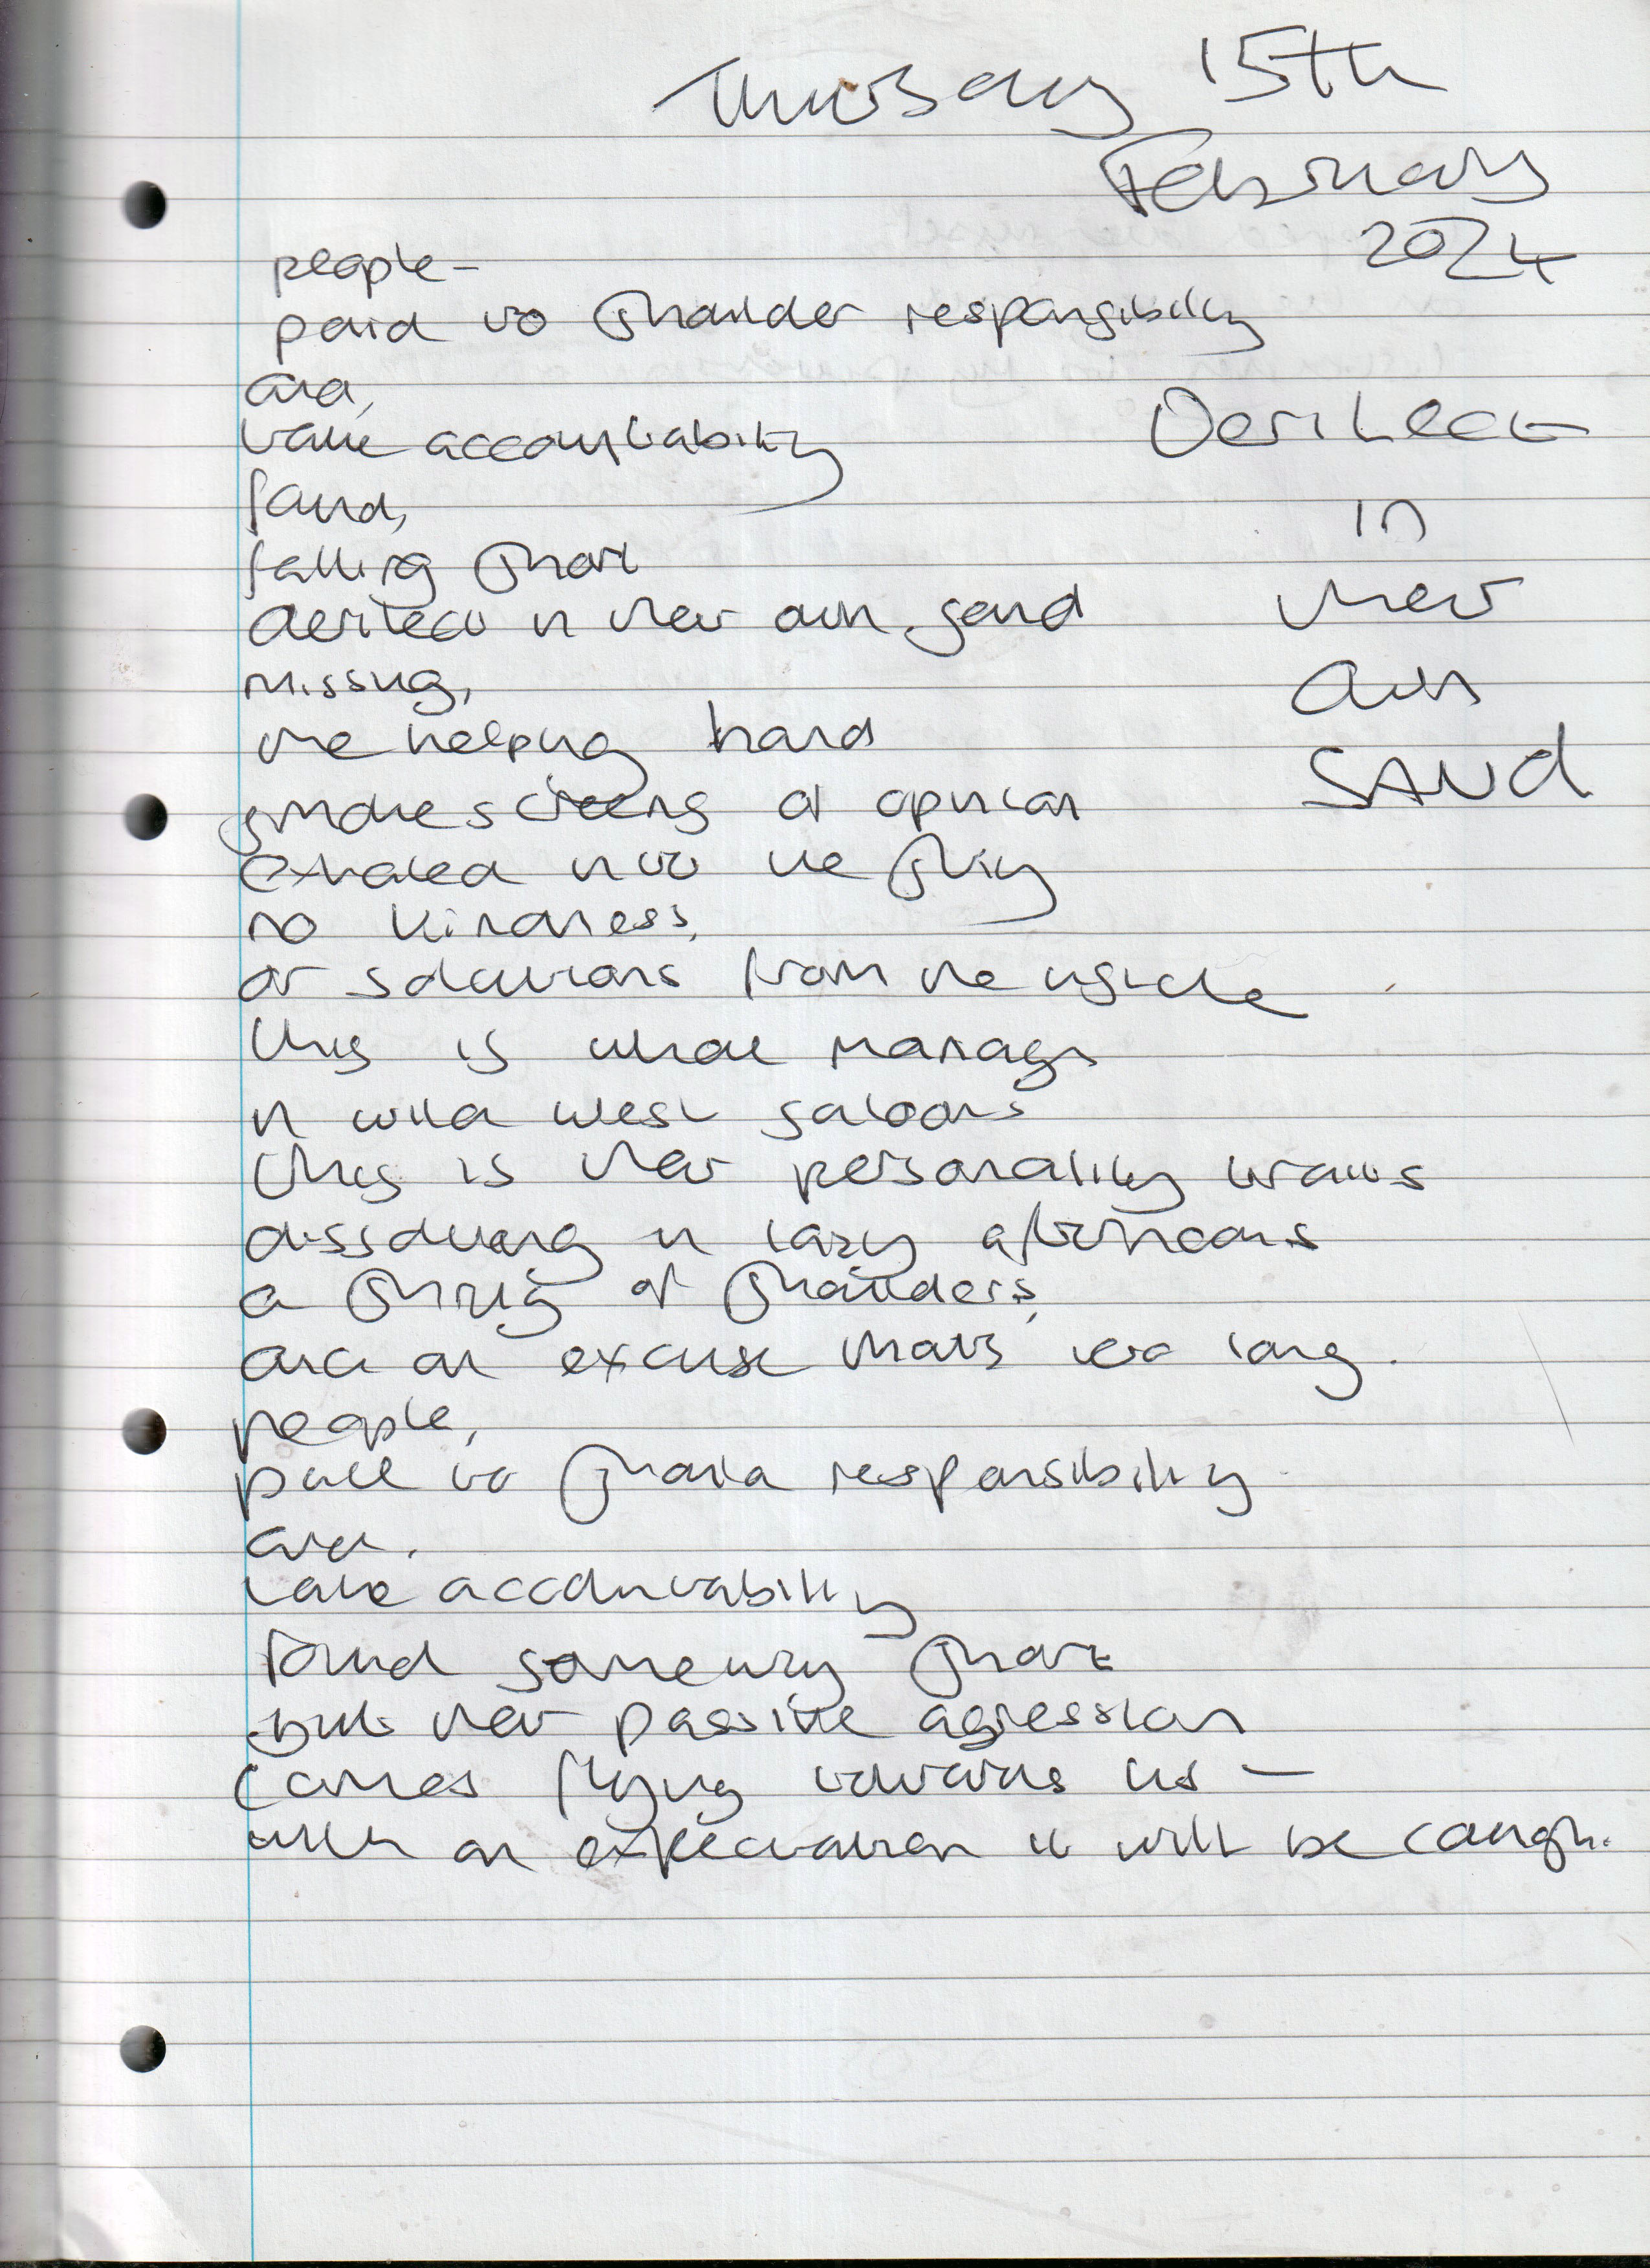 Thursday 15th
February
2024
people-
paid to shoulder responsibility
and,
take accountability
found,
falling short
derilect in their own sand
missing,
the helping hand
smokescreens of opinion
exhaled into the sky
no kindness,
or solutions from the inside
this is what
in wild west saloons
this is their personality traits
dissolving in lazy afternoons
a shrug of shoulders,
and an excuse thats too long.
people,
paid to responsibility
and,
take accountability
found someway short
but their passive agression
comes flying towards us -
with an expectation it will be caught.
Derilect
in
their
own
SANd